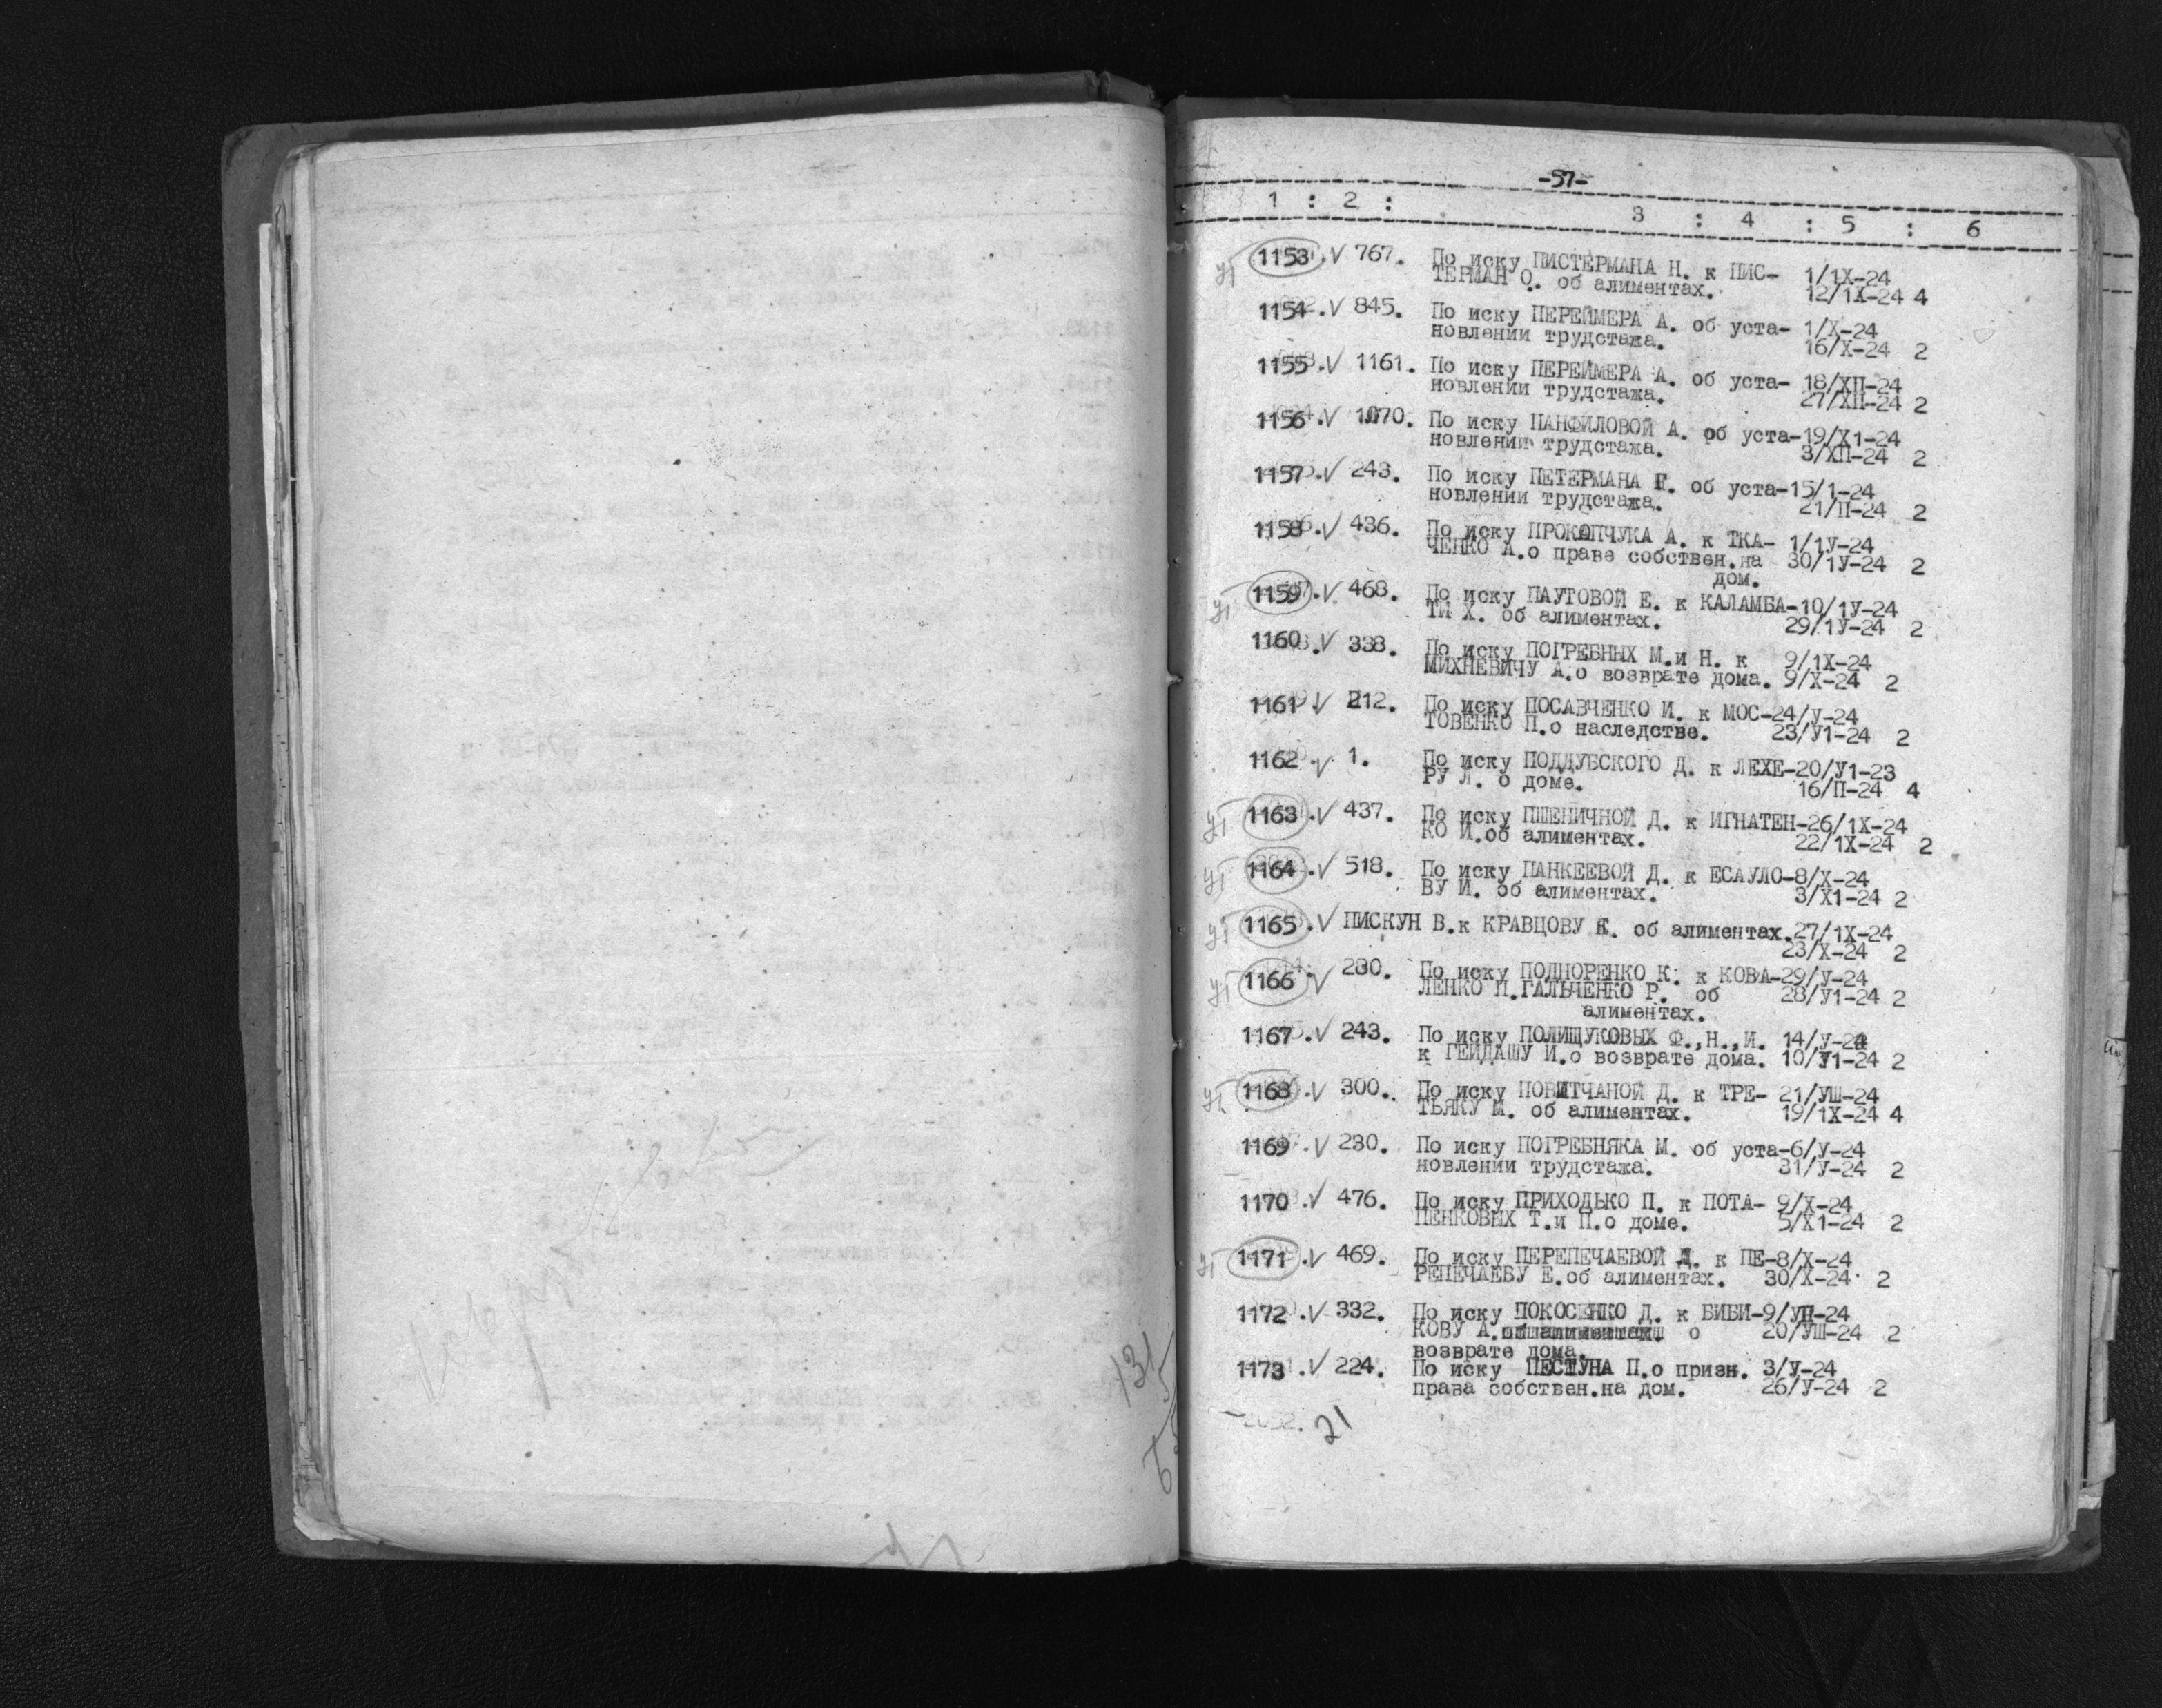 -57-
1 : 2 : 3 : 4 : 5 : 6
1153. V 767. По иску ПИСТЕРМАНА Н. к ПИС- 1/1Х-24
ТЕРМАН О. об алиментах. 12/1Х-24 4
1154. V 845. По иску ПЕРЕЙМЕРА А. об уста- 1/Х-24
новлении трудстажа. 16/Х-24 2
1155. V 1161. По иску ПЕРЕЙМЕРА А. об уста- 18/ХП-24
новлении трудстажа. 27/ХП-24 2
1156. V 1070. По иску ПАНФИЛОВОЙ А. об уста-19/Х1-24
новлении трудстажа. 3/ХП-24 2
1157. V 243. По иску ПЕТЕРМАНА Г. об уста-15/1-24
новлении трудстажа. 21/П-24 2
1158. V 436. По иску ПРОКОПЧУКА А. к ТКА- 1/1У-24
ЧЕНКО А.о праве собствен.на 30/1У-24 2
дом.
1159. V 468. По иску ПАУТОВОЙ Е. к КАЛАМБА-10/1У-24
ТИ Х. об алиментах. 29/1У-24 2
1160. V 338. По иску ПОГРЕБНЫХ М.и Н. к 9/1Х-24
МИХНЕВИЧУ А.о возврате дома. 9/Х-24 2
1161. V 212. По иску ПОСАВЧЕНКО И. к МОС-24/У-24
ТОВЕНКО П.о наследстве. 23/У1-24 2
1162. V 1. По иску ПОДДУБСКОГО Д. к ЛЕХЕ-20/У1-23
РУ Л. о доме. 16/П-24 4
1163. V 437. По иску ПШЕНИЧНОЙ Д. к ИГНАТЕН-26/1Х-24
КО И.об алиментах. 22/1Х-24 2
1164. V 518. По иску ПАНКЕЕВОЙ Д. к ЕСАУЛО-8/Х-24
ВУ И. об алиментах. 3/Х1-24 2
1165. V ПИСКУН В.к КРАВЦОВУ Е. об алиментах.27/1Х-24
23/Х-24 2
1166. V 280. По иску ПОДНОРЕНКО К. к КОВА-29/У-24
ЛЕНКО П.ГАЛЬЧЕНКО Р. об 28/У1-24 2
алиментах.
1167. V 243. По иску ПОЛИЩУКОВЫХ Ф.,Н.,И. 14/У-24
к ГЕЙДАШУ И.о возврате дома. 10/У1-24 2
1168. V 300. По иску ПОВИТЧАНОЙ Д. к ТРЕ- 21/УШ-24
ТЬЯКУ М. об алиментах. 19/1Х-24 4
1169. V 230. По иску ПОГРЕБНЯКА М. об уста-6/У-24
новлении трудстажа. 31/У-24 2
1170. V 476. По иску ПРИХОДЬКО П. к ПОТА- 9/Х-24
ПЕНКОВЫХ Т.и П.о доме. 5/Х1-24 2
1171. V 469. По иску ПЕРЕПЕЧАЕВОЙ Д. к ПЕ-8/Х-24
РЕПЕЧАЕВУ Е.об алиментах. 30/Х-24 2
1172. V 332. По иску ПОКОСЕНКО Д. к БИБИ-9/УП-24
КОВУ А. о 20/УШ-24 2
возврате дома.
1173. V 224. По иску ПЕСТУНА П.о призн. 3/У-24
права собствен.на дом. 26/У-24 2
21
131